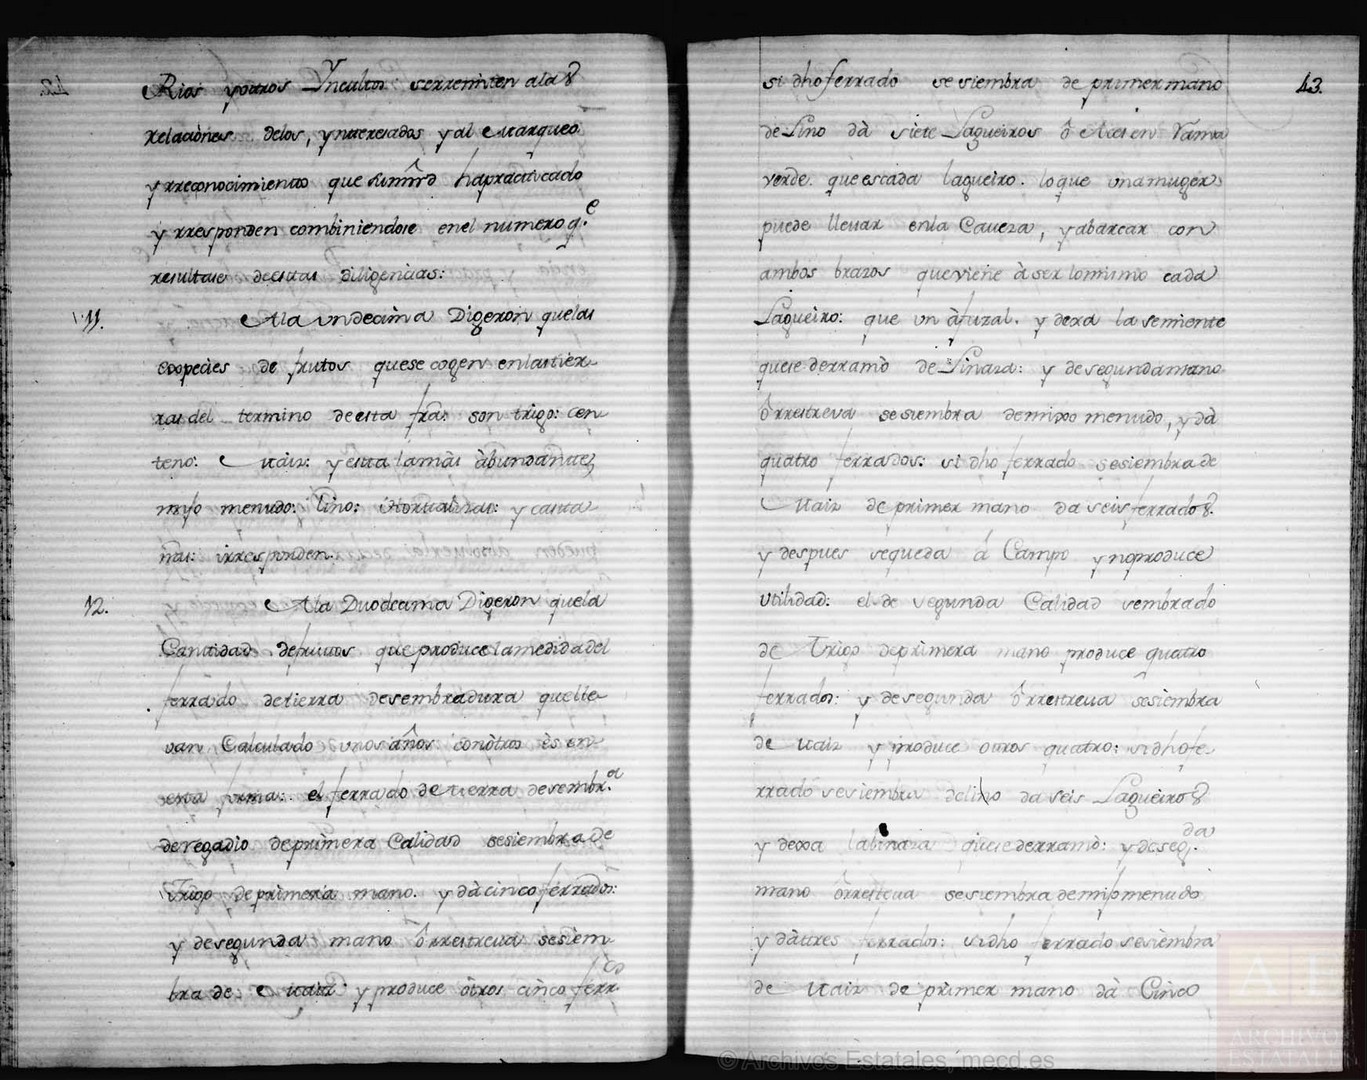 Rios y otros Yncultos serremiten ala8
relaciones delos, ynteresados y al Marqueo
y rreconocimiento que sumrd hapracticado
y rresponden combiniendose enel numero q.e
resultase deestas Diligencias:
11. Ala undecima Digeron quelas
especies de frutos quese cogen enlastier-
ras del termino deesta fra: son trigo: cen
teno: Maiz: y esta lamas abundante,
mijo menudo: lino: Hortalizas: y casta
ñas: irresponden.
12. Ala Duodecima Digeron quela
Cantidad defrutos que produce lamedidadel
ferrado detierra desembradura quelle-
van Calculado unos años conotros es en
esta forma: el ferrado de tierra desembr.a
deregadio deprimera Calidad sesiembra de
Trigo deprimera mano. y dà cinco ferrados:
y desegunda mano ôrrestreva sesiem
bra de Maiz y produce ôtros cinco ferr.os
43.
si dho ferrado sesiembra de primermano
de Lino dà siete Lagueiros ô Aces en rama
verde. que escada lagueiro. loque una muger
puede llevar enla Caveza, y abarcar con
ambos brazos queviene à ser lomismo cada
Lagueiro: que un afuzal. y dexa la semiente
quese derramò de Linaza: y desegundamano
ôrrestreva sesiembra demixo menudo, y dà
quatro ferrados: si dho ferrado sesiembra de
Maiz de primer mano da seis ferrado8.
y despues sequeda á Campo y noproduce
utilidad: el de segunda Calidad sembrado
de Trigo deprimera mano produce quatro
ferrados: y desegunda ôrrestreua sesiembra
de Maiz y produce otros quatro: sidhofe-
rrado sesiembra delino da seis Lagueiro8
y dexa labinaza quese derramò: y deseg.da
mano ôrrestreua sesiembra demijomenudo
y dàtres ferrados: sidho ferrado sesiembra
de Maiz de primer mano dà Cinco
AE
ARCHIVOS
ESTATALES
© Archivos Estatales, mecd.es